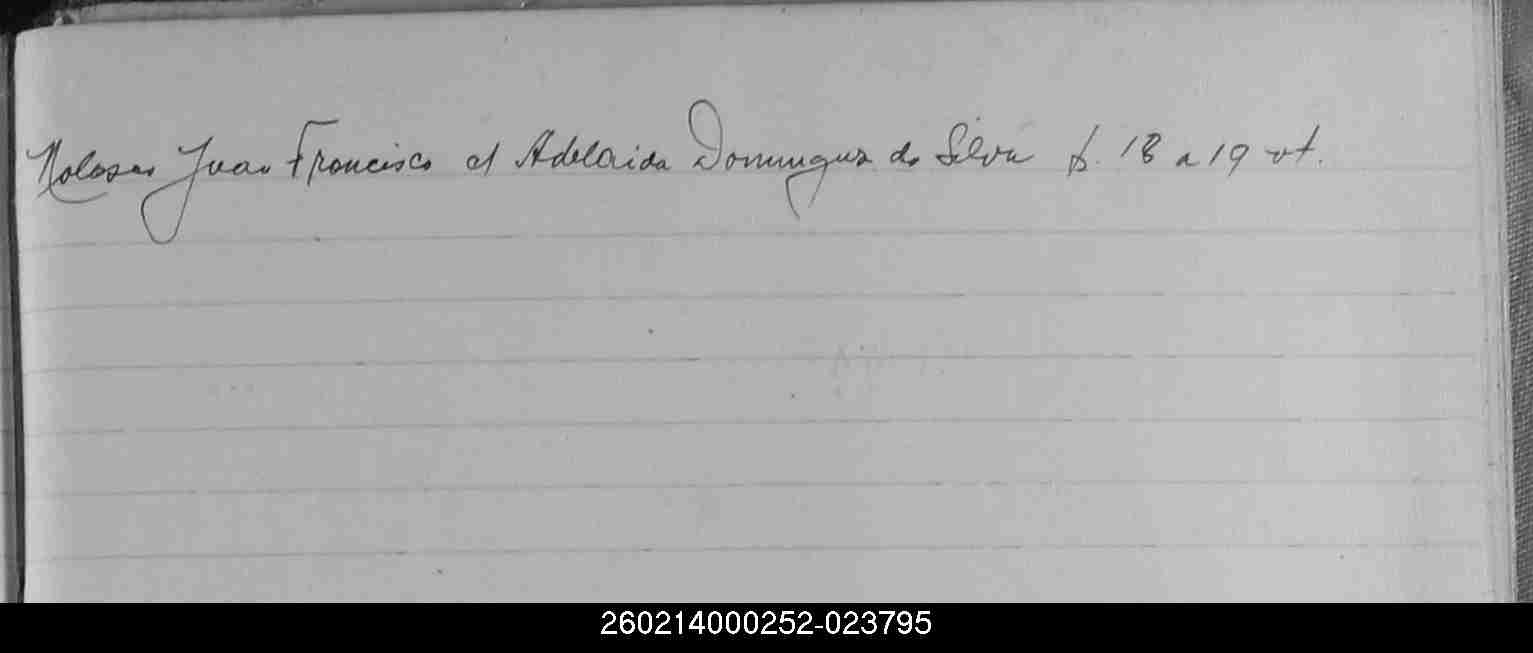 Juan Francisco et Adelaida Domingues da Silva f. 18 a 19 vt.
260214000252-023795